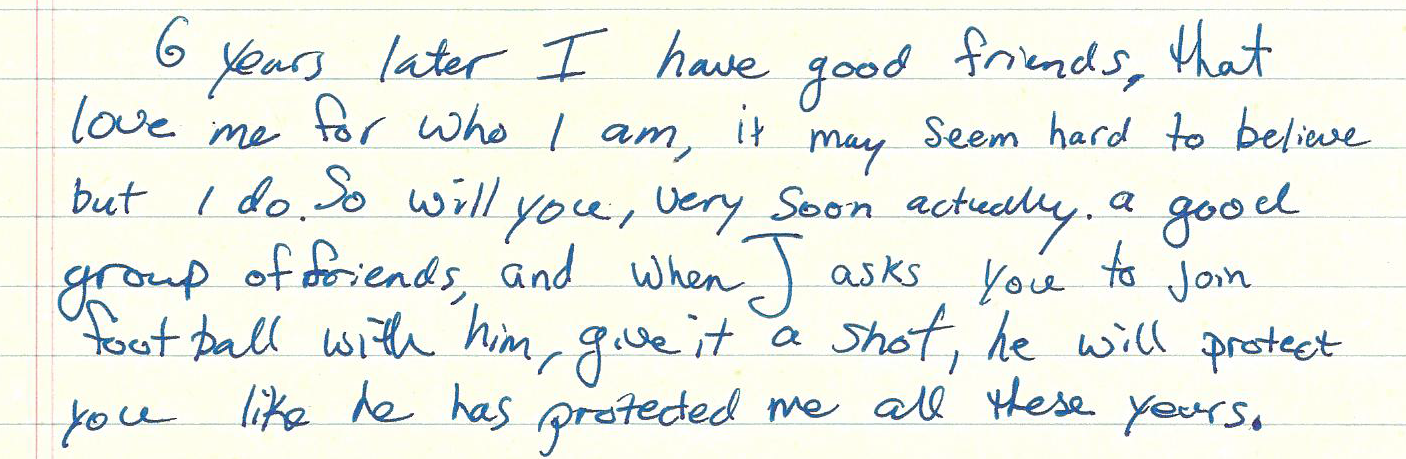 6 years later I have good friends, that
love me for who I am, it may seem hard to believe
but I do. So will you, very soon actually. a good
group of friends, and when J asks you to join
football with him, give it a shot, he will protect
you like he has protected me all these years.